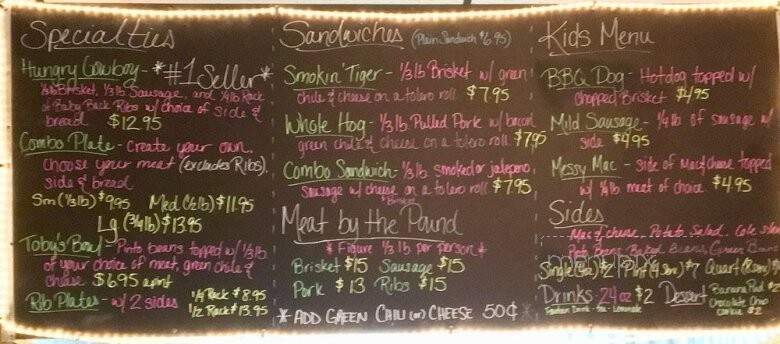 Specialties
Hungry Cowboy - *#1 Seller*
1/3lb Brisket, 1/3lb Sausage, and 1/4lb Rack
of Baby Back Ribs w/ choice of side &
bread $12.95
Combo Plate - Create your own,
choose your meat (excludes Ribs),
side & bread
Sm (1/3lb) $9.95 Med (1/2lb) $11.95
Lg (3/4lb) $13.95
Toby's Bowl - Pinto beans topped w/ 1/3lb
of your choice of meat, green chile &
cheese $6.95
Rib Plates - w/ 2 sides 1/4 Rack $8.95
1/2 Rack $13.95
Sandwiches (Plain Sandwich $6.95)
Smokin' Tiger - 1/3lb Brisket w/ green
chile & cheese on a tolero roll $7.95
Whole Hog - 1/3lb Pulled Pork w/ bacon
green chile & cheese on a tolero roll $7.95
Combo Sandwich - 1/3lb smoked or jalapeno
sausage w/ cheese on a tolero roll $7.95
& Brisket
Meat by the Pound
* Figure 1/3 lb per person *
Brisket $15 Sausage $15
Pork $13 Ribs $15
* ADD GREEN CHILI (or) CHEESE 50¢ *
Kids Menu
BBQ Dog - Hotdog topped w/
chopped Brisket $4.95
Mild Sausage - 1/4lb of sausage w/
side $4.95
Messy Mac - side of Mac & cheese topped
w/ 1/4lb meat of choice $4.95
Sides
Mac & cheese Potato Salad Cole slaw
Pinto Beans Baked Beans Green
Single $2 Pint $7 Quart
Drinks - 24oz $2 Dessert Banana Pud $2
Fountain Drink - Tea - Lemonade Chocolate Chip
cookie $2